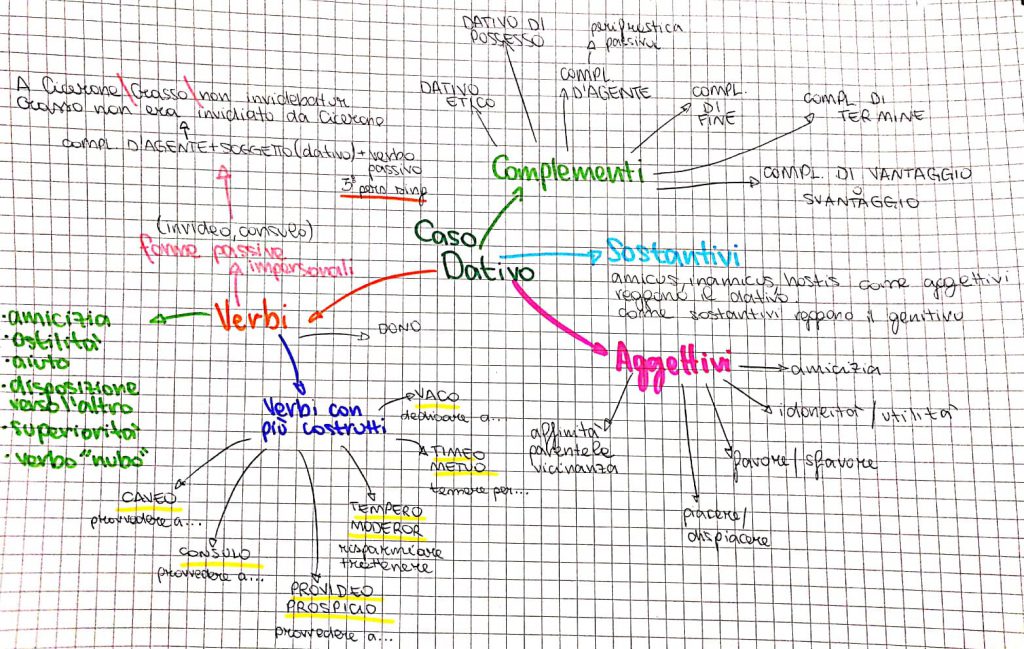 DATIVO DI
POSSESSO
perifrastica
passiva
DATIVO
ETICO
COMPL.
D'AGENTE
COMPL.
DI
FINE
COMPL DI
TERMINE
Complementi
COMPL. DI VANTAGGIO
O
SVANTAGGIO
A Cicerone\Crasso\non invidebatur
Crasso non era invidiato da Cicerone
COMPL D'AGENTE+SOGGETTO(dativo)+verbo
passivo
3ª pers sing
(invideo, consulo)
forme passive
impersonali
Caso
Dativo
Sostantivi
amicus, inamicus, hostis come aggettivi
reggono il dativo.
come sostantivi reggono il genitivo
Verbi
DONO
·amicizia
·ostilità
·aiuto
·disposizione
verso l'altro
·superiorità
·verbo "nubo"
Verbi con
più costrutti
VACO
dedicare a...
TIMEO
METUO
temere per...
TEMPERO
MODEROR
risparmiare
trattenere
PROVIDEO
PROSPICIO
provvedere a...
CONSULO
provvedere a...
CAVEO
provvedere a...
Aggettivi
amicizia
idoneità/utilità
favore/sfavore
piacere/
dispiacere
affinità
parentele
vicinanza